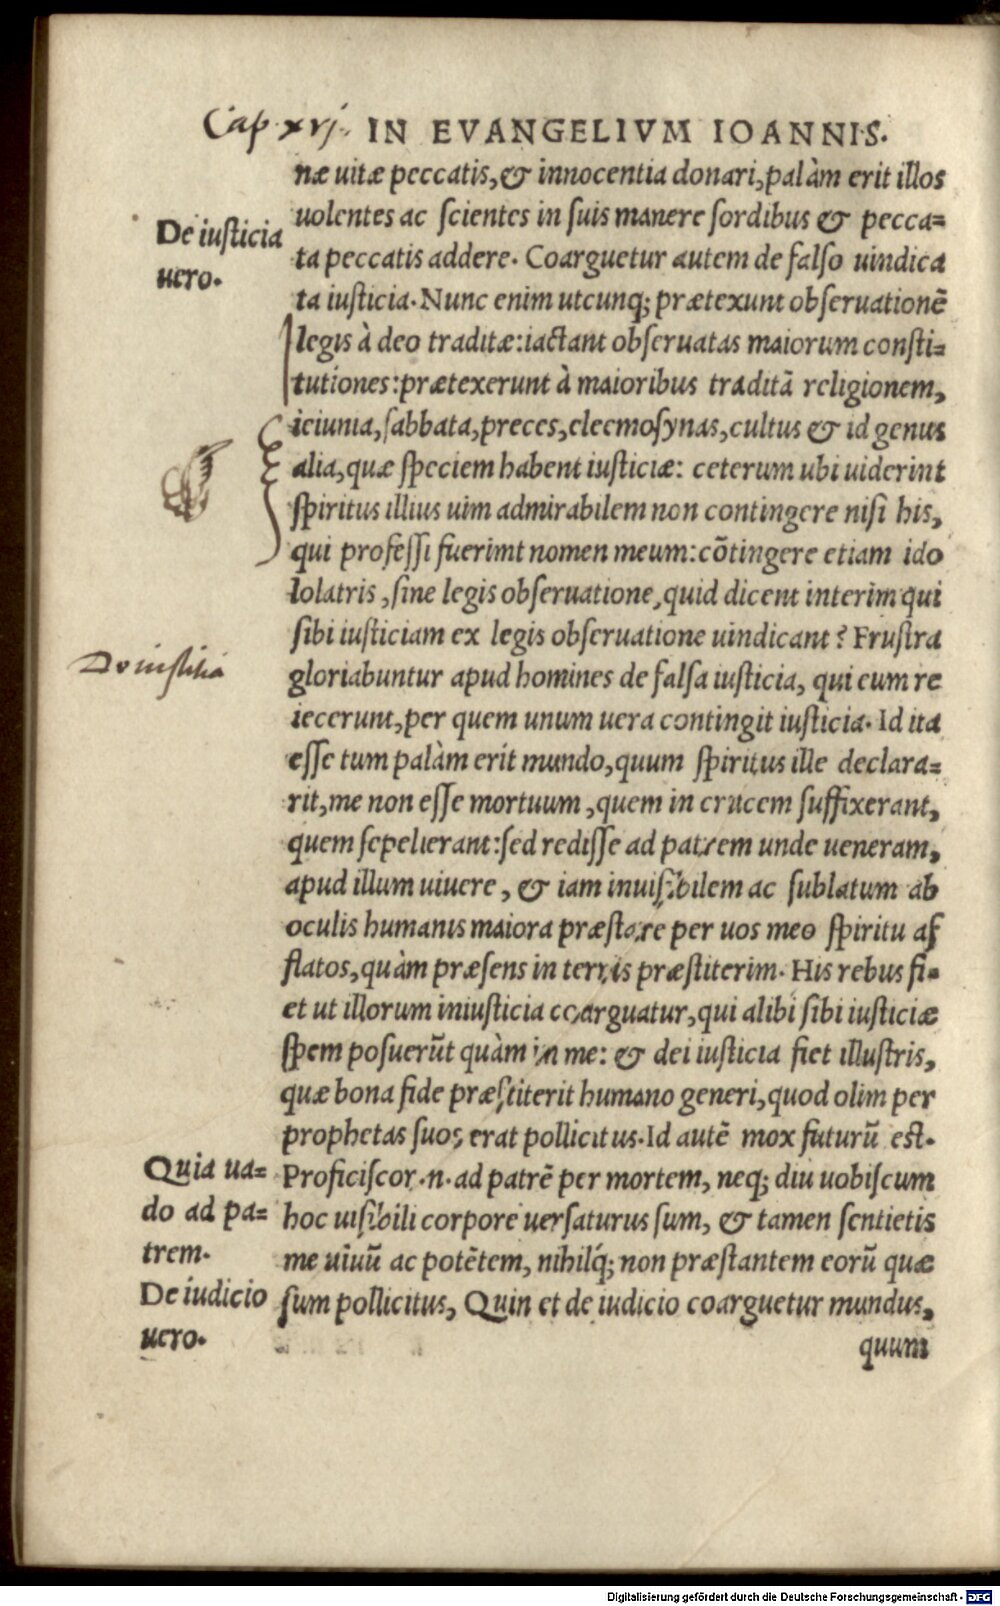 Cap. xvj. IN EVANGELIVM IOANNIS.
næ uitæ peccatis, & innocentia donari, palàm erit illos
uolentes ac scientes in suis manere sordibus & pecca=
De iusticia
uero.
ta peccatis addere. Coarguetur autem de falso uindica
ta iusticia. Nunc enim utcunq; prætexunt obseruationē
legis à deo traditæ: iactant obseruatas maiorum consti=
tutiones: prætexerunt à maioribus traditā religionem,
ieiunia, sabbata, preces, eleemosynas, cultus & id genus
alia, quæ speciem habent iusticiæ: ceterum ubi uiderint
spiritus illius uim admirabilem non contingere nisi his,
qui professi fuerimt nomen meum: cōtingere etiam ido
lolatris, sine legis obseruatione, quid dicent interim qui
sibi iusticiam ex legis obseruatione uindicant? Frustra
De iustitia
gloriabuntur apud homines de falsa iusticia, qui eum re
iecerunt, per quem unum uera contingit iusticia. Id ita
esse tum palàm erit mundo, quum spiritus ille declara=
rit, me non esse mortuum, quem in crucem suffixerant,
quem sepelierant: sed redisse ad patrem unde ueneram,
apud illum uiuere, & iam inuisibilem ac sublatum ab
oculis humanis maiora præstare per uos meo spiritu af
flatos, quàm præsens in terris præstiterim. His rebus fi=
et ut illorum iniusticia coarguatur, qui alibi sibi iusticiæ
spem posuerūt quàm in me: & dei iusticia fiet illustris,
quæ bona fide præstiterit humano generi, quod olim per
prophetas suos erat pollicitus. Id autē mox futurū est.
Quia ua=
do ad pa=
trem.
Proficiscor .n. ad patrē per mortem, neq; diu uobiscum
hoc uisibili corpore uersaturus sum, & tamen sentietis
me uiuū ac potētem, nihilq́; non præstantem eorū quæ
De iudicio
uero.
sum pollicitus, Quin et de iudicio coarguetur mundus,
quum
Digitalisierung gefördert durch die Deutsche Forschungsgemeinschaft - DFG